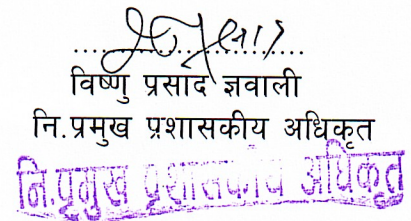 विष्णु प्रसाद ज्ञवाली
नि.प्रमुख प्रशासकीय अधिकृत
नि.प्रमुख प्रशासकीय अधिकृत